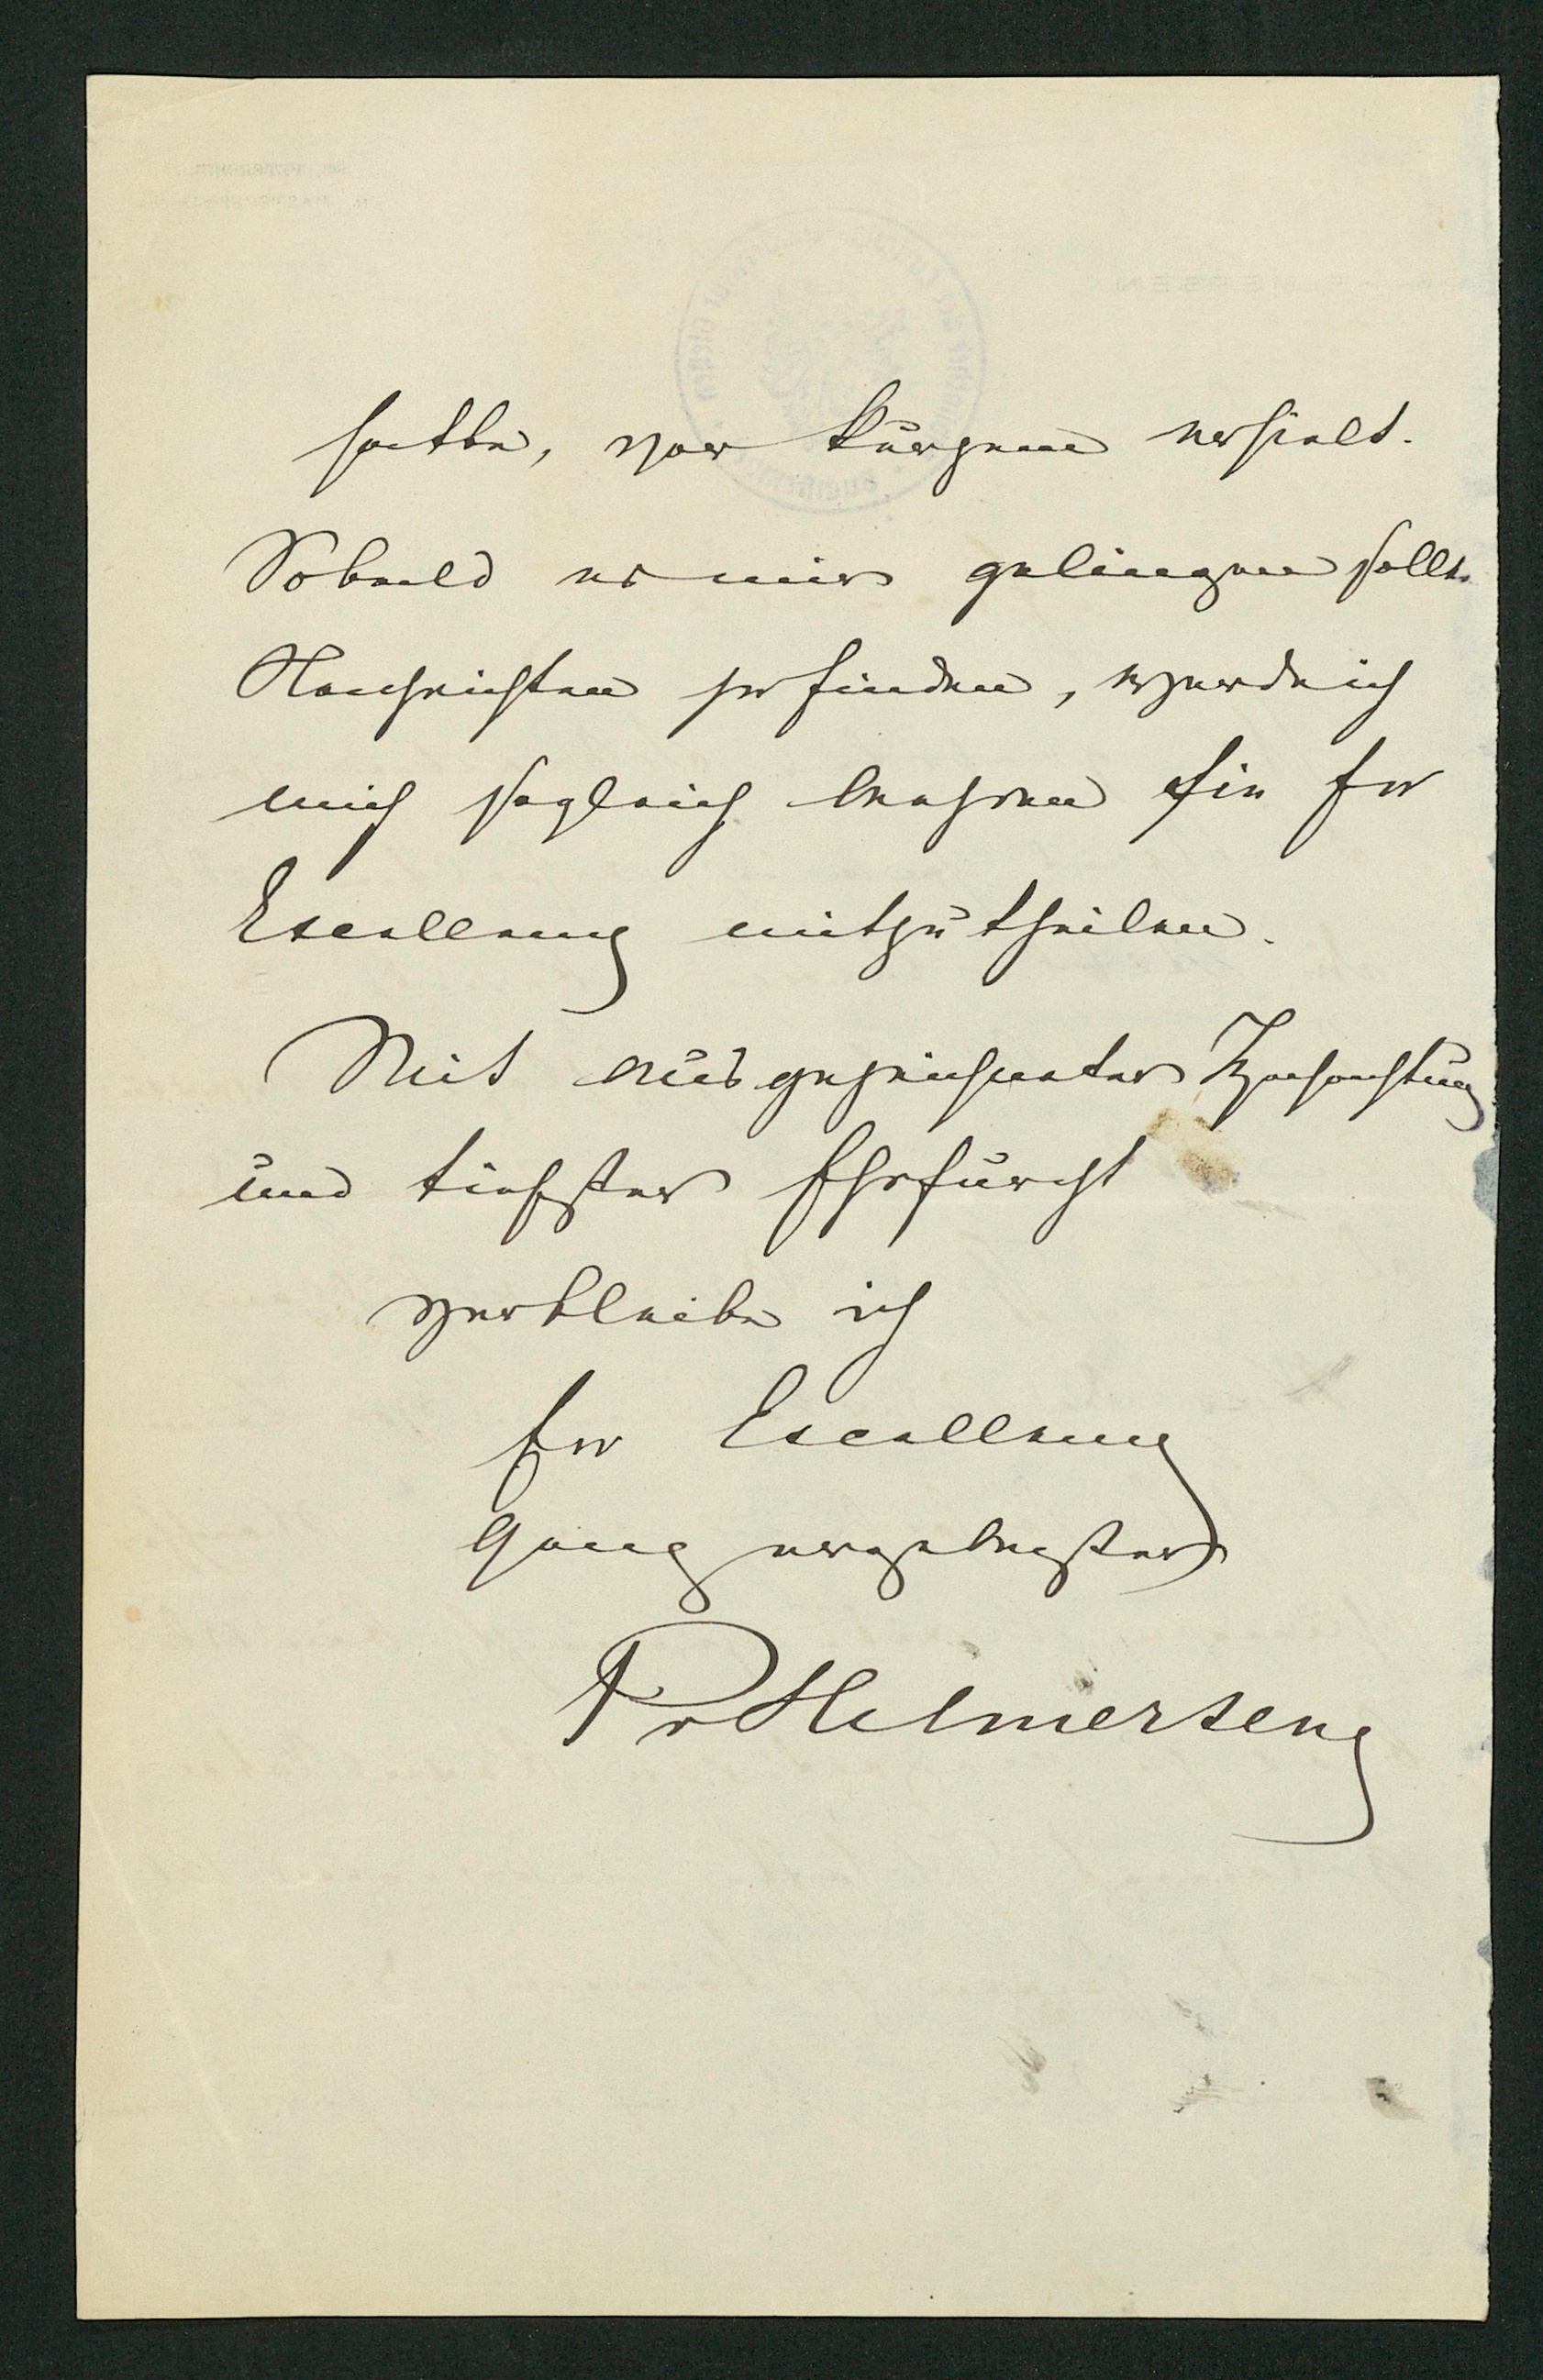 hatte, vor kurzem erhielt.
Sobald es mir gelingen sollte
Nachrichten zu finden, werde ich
mich sogleich beehren sie Ew
Excellenz mitzutheilen.
Mit ausgezeichneter Hochachtung
und tiefster Ehrfurcht
verbleibe ich
Ew Excellenz
Ganz ergebenster
P v Helmersen